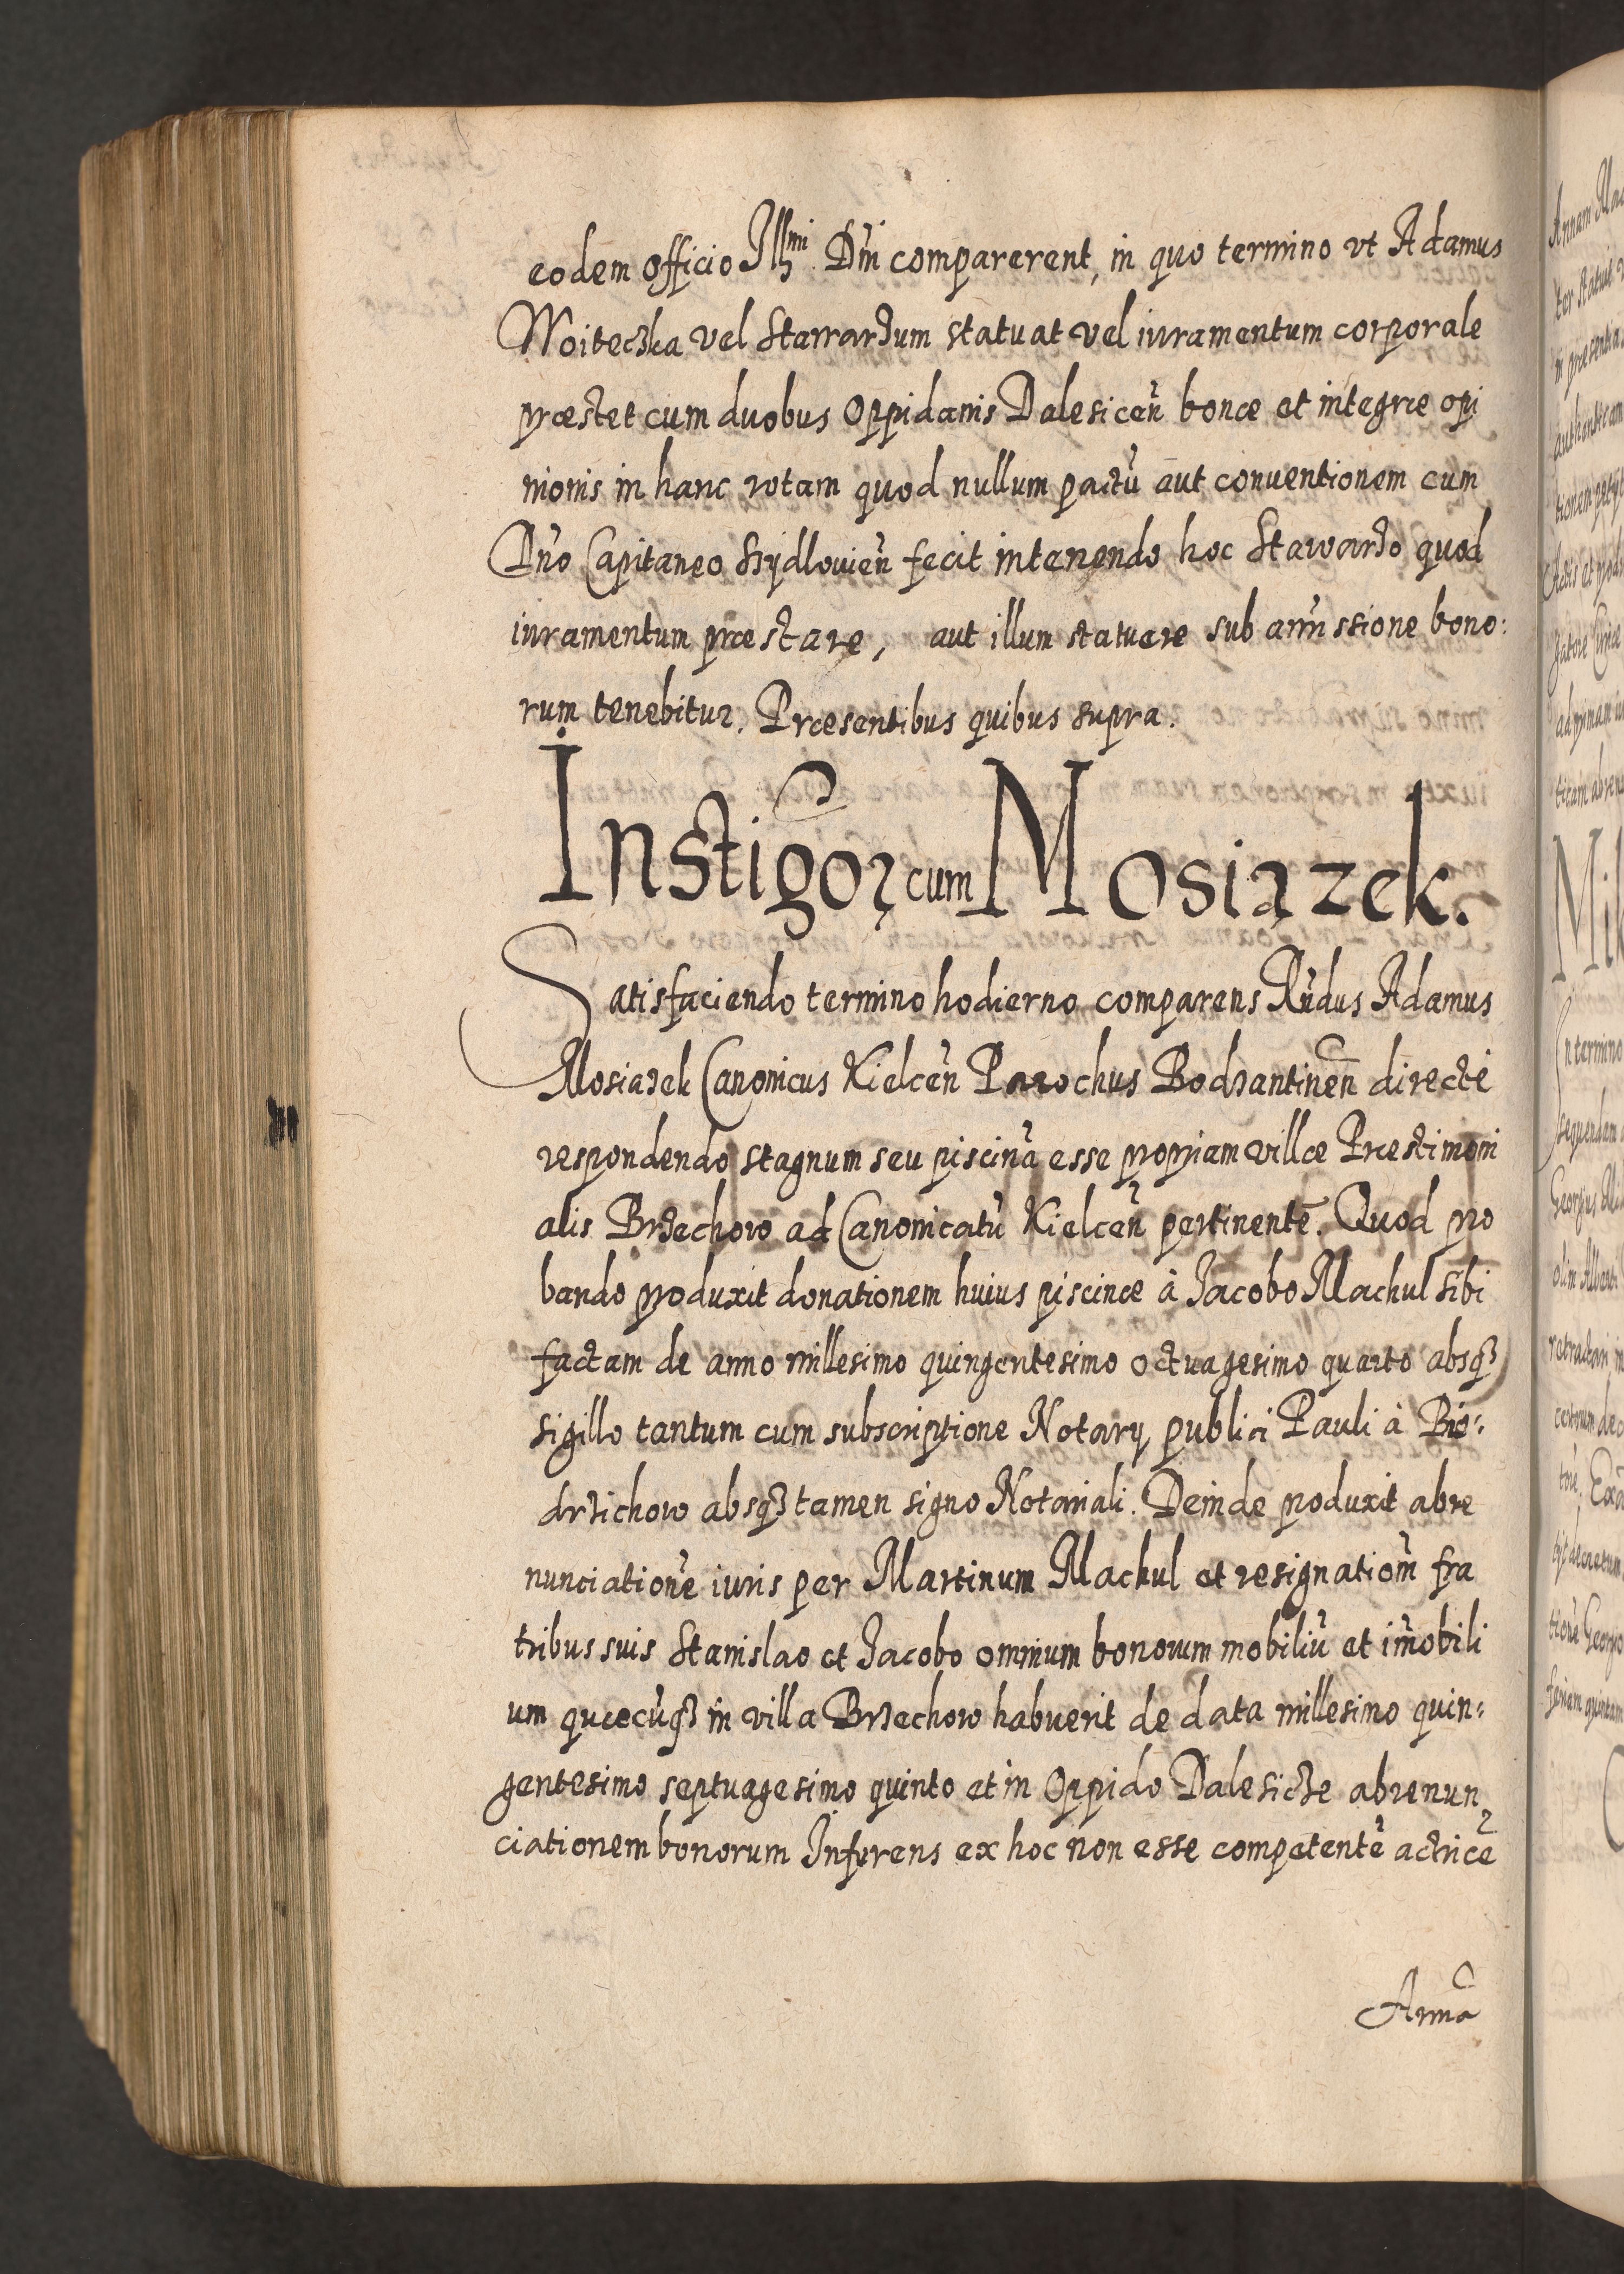 eodem officio Illmi Dni comparerent, in quo termino vt Adamus
Woiteczka vel Starrarzum statuat vel iuramentum corporale
præstet cum duobus Oppidanis Dalesicen̄ bonæ et integræ opi
nionis in hanc rotam quod nullum pactū aut conuentionem cum
Dn̄o Capitaneo Szydlouien̄ fecit intenendo hoc Stawarzo quod
iuramentum præstare, aut illum statuere sub amissione bono:
rum tenebitur. Præsentibus quibus supra.
Instigor cum Mosiązek.
Satisfaciendo termino hodierno comparens Rn̄dus Adamus
Mosiazek Canonicus Kielcen̄ Parochus Bodzantinen̄ directè
respondendo stagnum seu piscinā esse propriam villæ Præstimoni
alis Brzechow ad Canonicatū Kielcen̄ pertinentē. Quod pro
bando produxit donationem huius piscinæ à Jacobo Machul sibi
factam de anno millesimo quingentesimo octuagesimo quarto absqȝ
sigillo tantum cum subscriptione Notarij publici Pauli à Bio:
drzichow absqȝ tamen signo Notariali. Deinde produxit abre
nunciationē iuris per Martinum Machul et resignatiom̄ fra
tribus suis Stanislao et Jacobo omnium bonorum mobiliū et im̄obili
um quæcūqȝ in villa Brzechow habuerit de data millesimo quin:
gentesimo septuagesimo quinto et in Oppido Dalesicze abrenun
ciationem bonorum Inferens ex hoc non esse competentē actricē
Annā